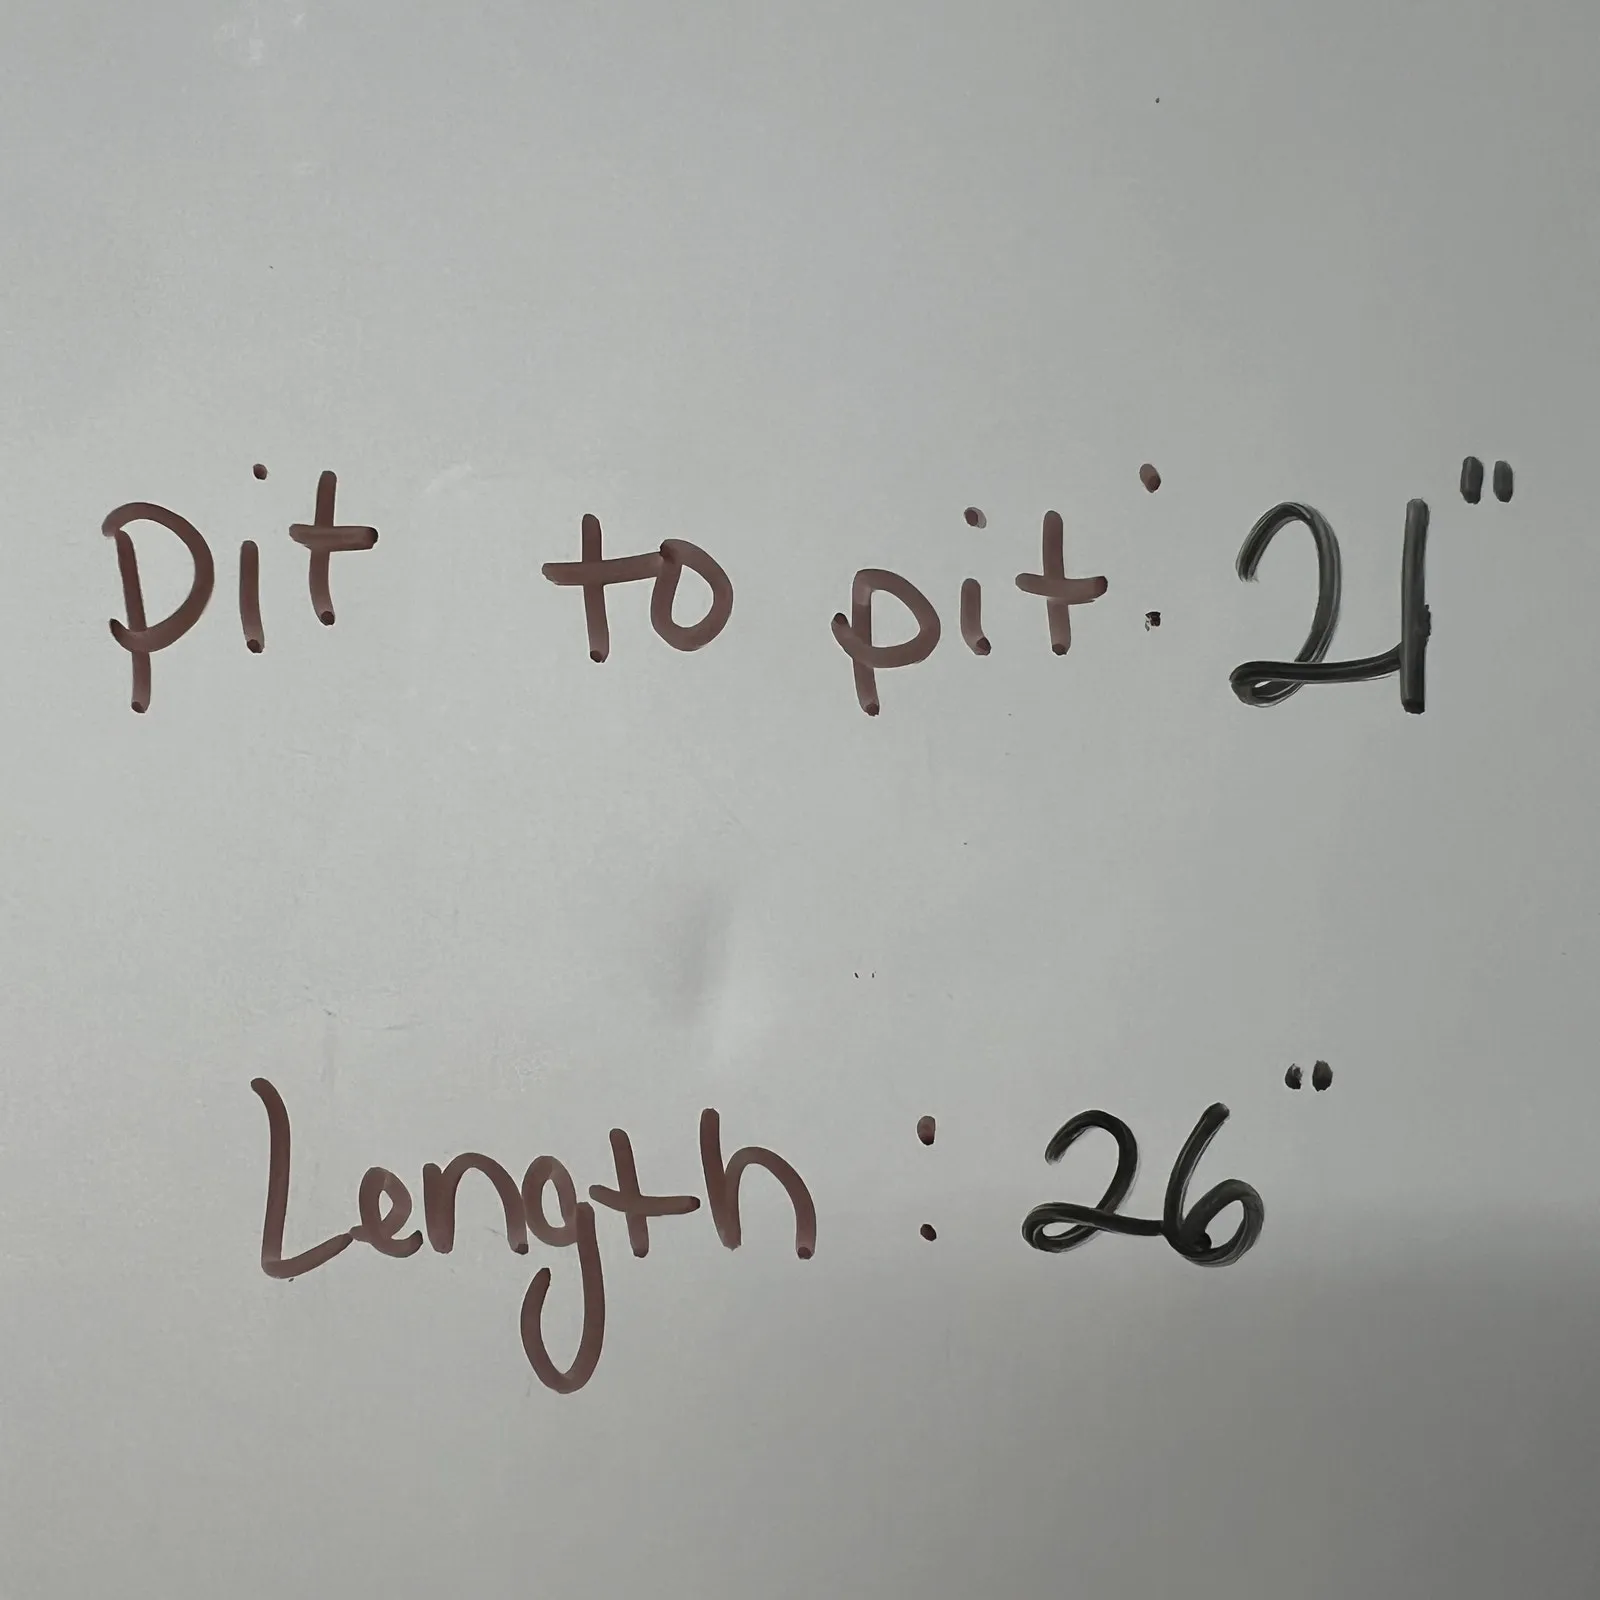 pit to pit: 21"
Length: 26"